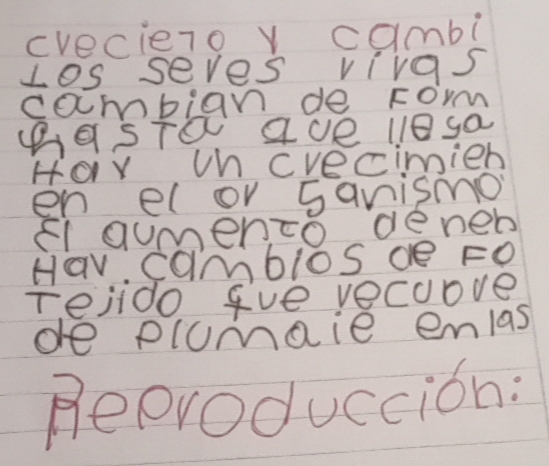 creciero y cambi
Los seres vivas
cambian de Form
hasta que llega
Hay un crecimien
en el or ganismo
El aumento de nen
Hay cambios de Fo
Tejido que recubre
de plumaje en las
Reproducción: